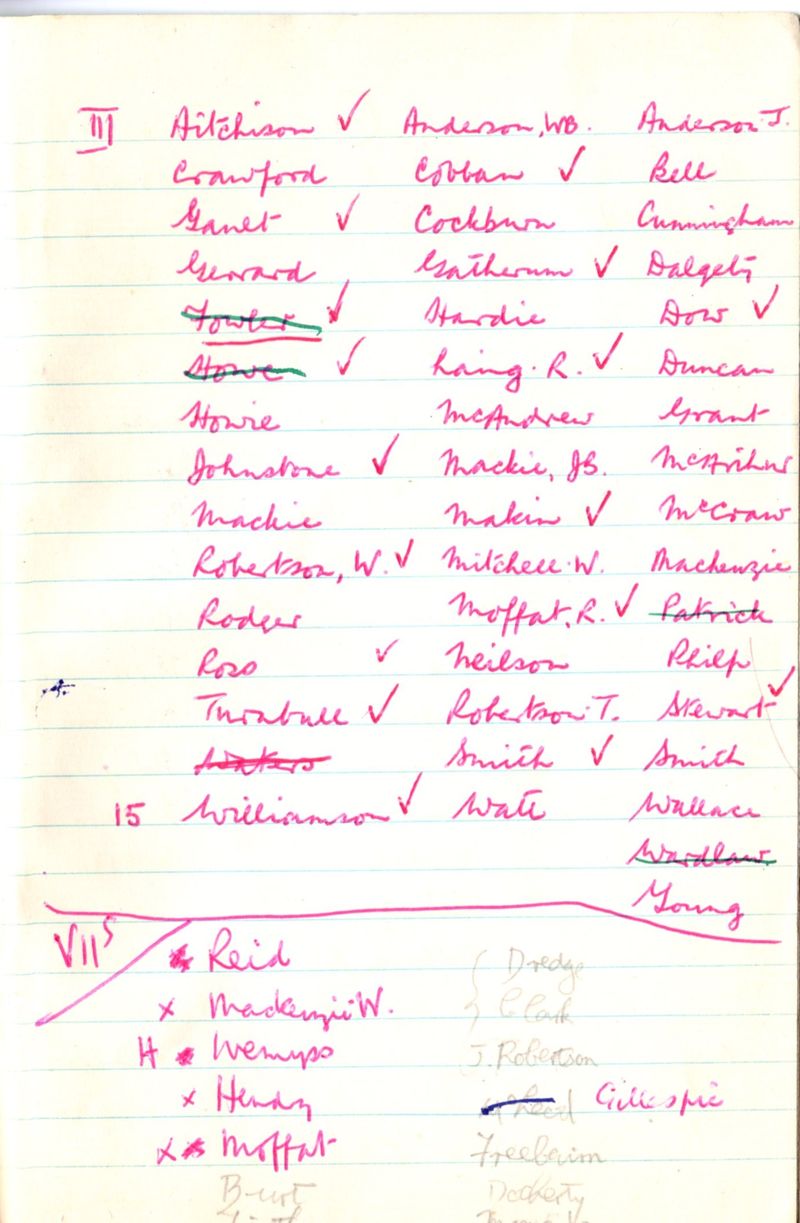 III Aitchison ✓ Anderson, WB. Anderson J.
Crawford Cobban ✓ Bell
Ganet ✓ Cockburn Cunningham
Gerrard Gatherum ✓ Dalgety
Fowler ✓ Hardie Dow ✓
Howe ✓ Laing. R. ✓ Duncan
Howie McAndrew Grant
Johnstone ✓ Mackie, JB. McArthur
Mackie Makin ✓ McCraw
Robertson, W. ✓ Mitchell. W. Mackenzie
Rodger Moffat, R. ✓ Patrick
Ross ✓ Neilson Philp
Turnbull ✓ Robertson. T. Stewart ✓
Smith ✓ Smith
15 Williamson ✓ Watt Wallace
Wardlaw
Young
VII S x Reid Dredge
x Mackenzie W. Clark
H x Wemyss J. Robertson
x Henry Gillespie
x x Moffat Freebairn
Burt Docherty